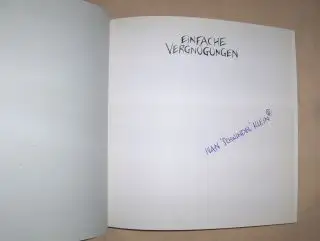 EINFACHE
VERGNÜGUNGEN
IVAN KLEIN